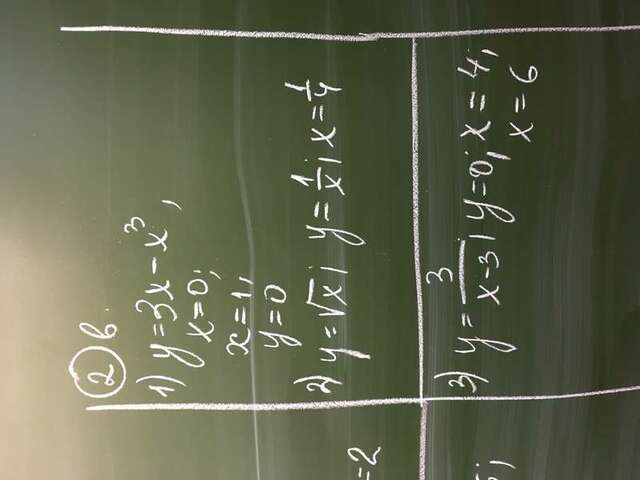 ② в.
1) y=3x-x³,
x=0;
x=1;
y=0
2) y=√x; y=1/x; x=1/4
=2
3) y=3/(x-3); y=0; x=4;
5;
x=6